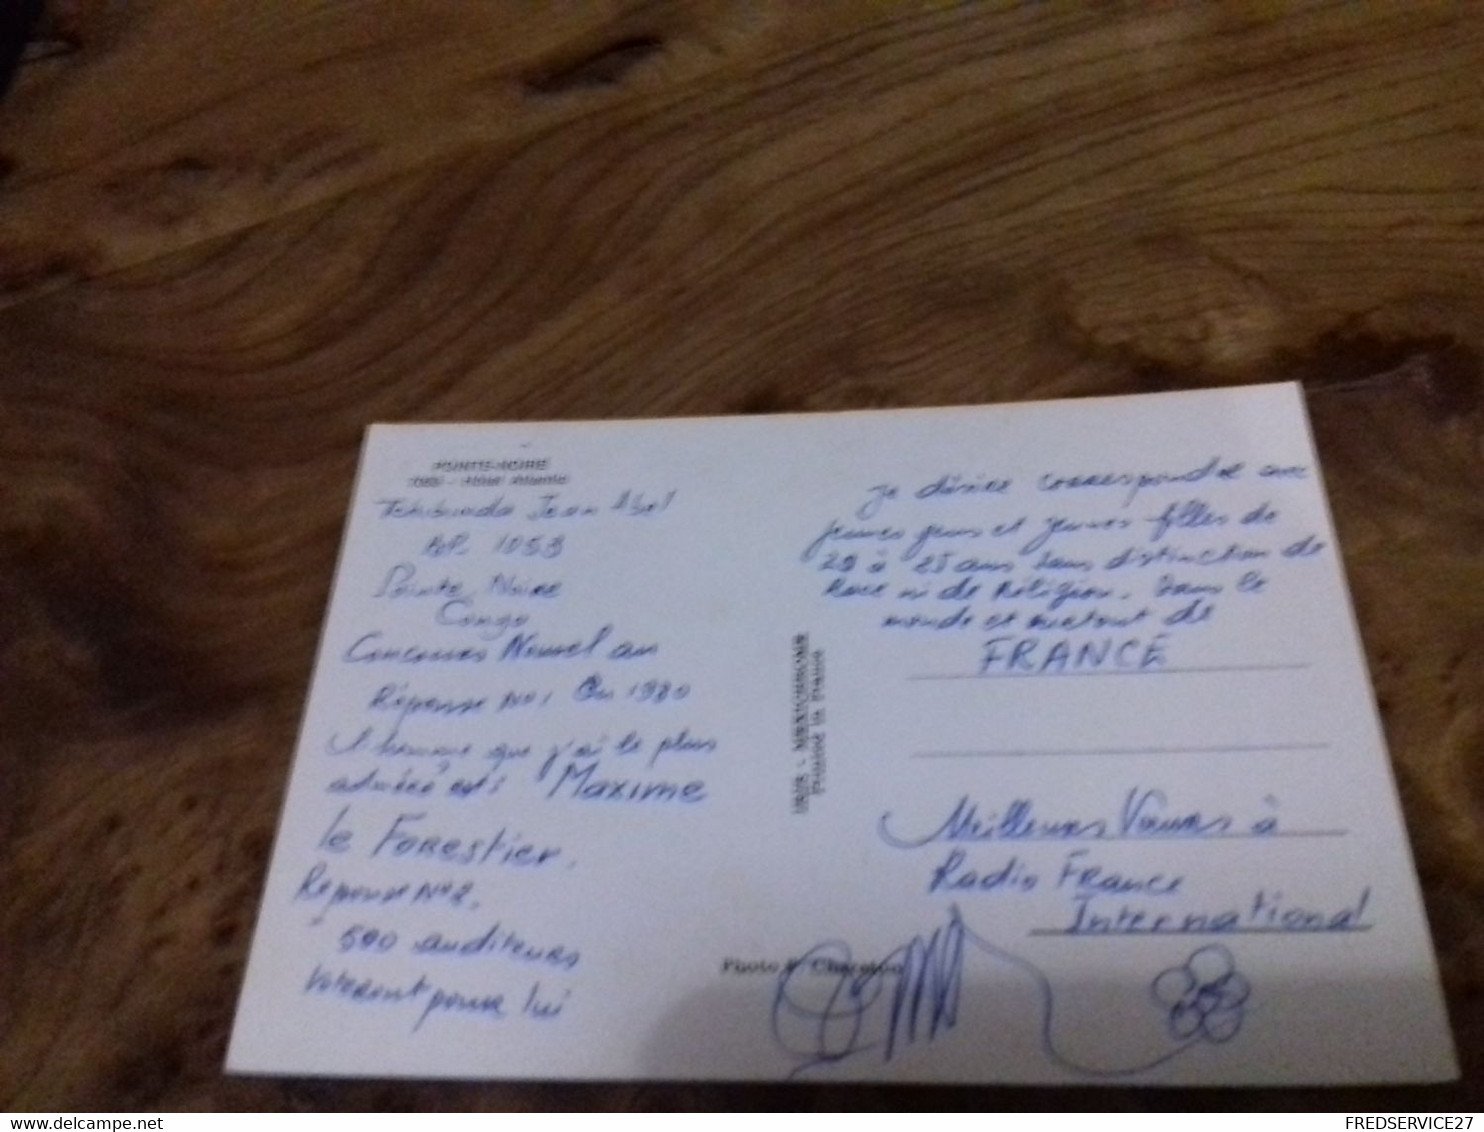 POINTE-NOIRE
Jean Abel
B.P. 1053
Pointe Noire
Congo
Concours Nouvel an
Réponse N°1 1980
L'homme que j'ai le plus
admiré est: Maxime
le Forestier.
Réponse N°2.
500 auditeurs
voteront pour lui
je désire correspondre avec
jeunes gens et jeunes filles de
à 25 ans sans distinction de
Race ni de Religion. Dans le
monde et surtout de
FRANCE
Meilleurs Vœux à
Radio France
International
IRIS - MEXICHROME
Photo
delcampe.net
FREDSERVICE27